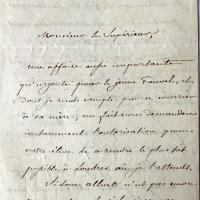 Monsieur le Supérieur,
une affaire aussi importante
qu'urgente pour le jeune Fauvel, et
dont je rends compte par ce courrier
à sa mère, me fait vous demander
instamment l'autorisation, pour
votre élève, de se rendre le plus tôt
possible à Londres où je l'attends.
Si donc Albert n'est pas encore